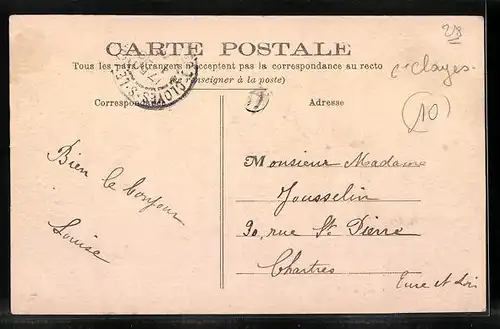 28
CARTE POSTALE
Tous les pays étrangers n'acceptent pas la correspondance au recto
(se renseigner à la poste)
c Cloyes
10
CLOYES-S-LE-
17
Correspondance
Adresse
Bien le bonjour
Louise
Monsieur Madame
Jousselin
90, rue St Pierre
Chartres
Eure et Loir